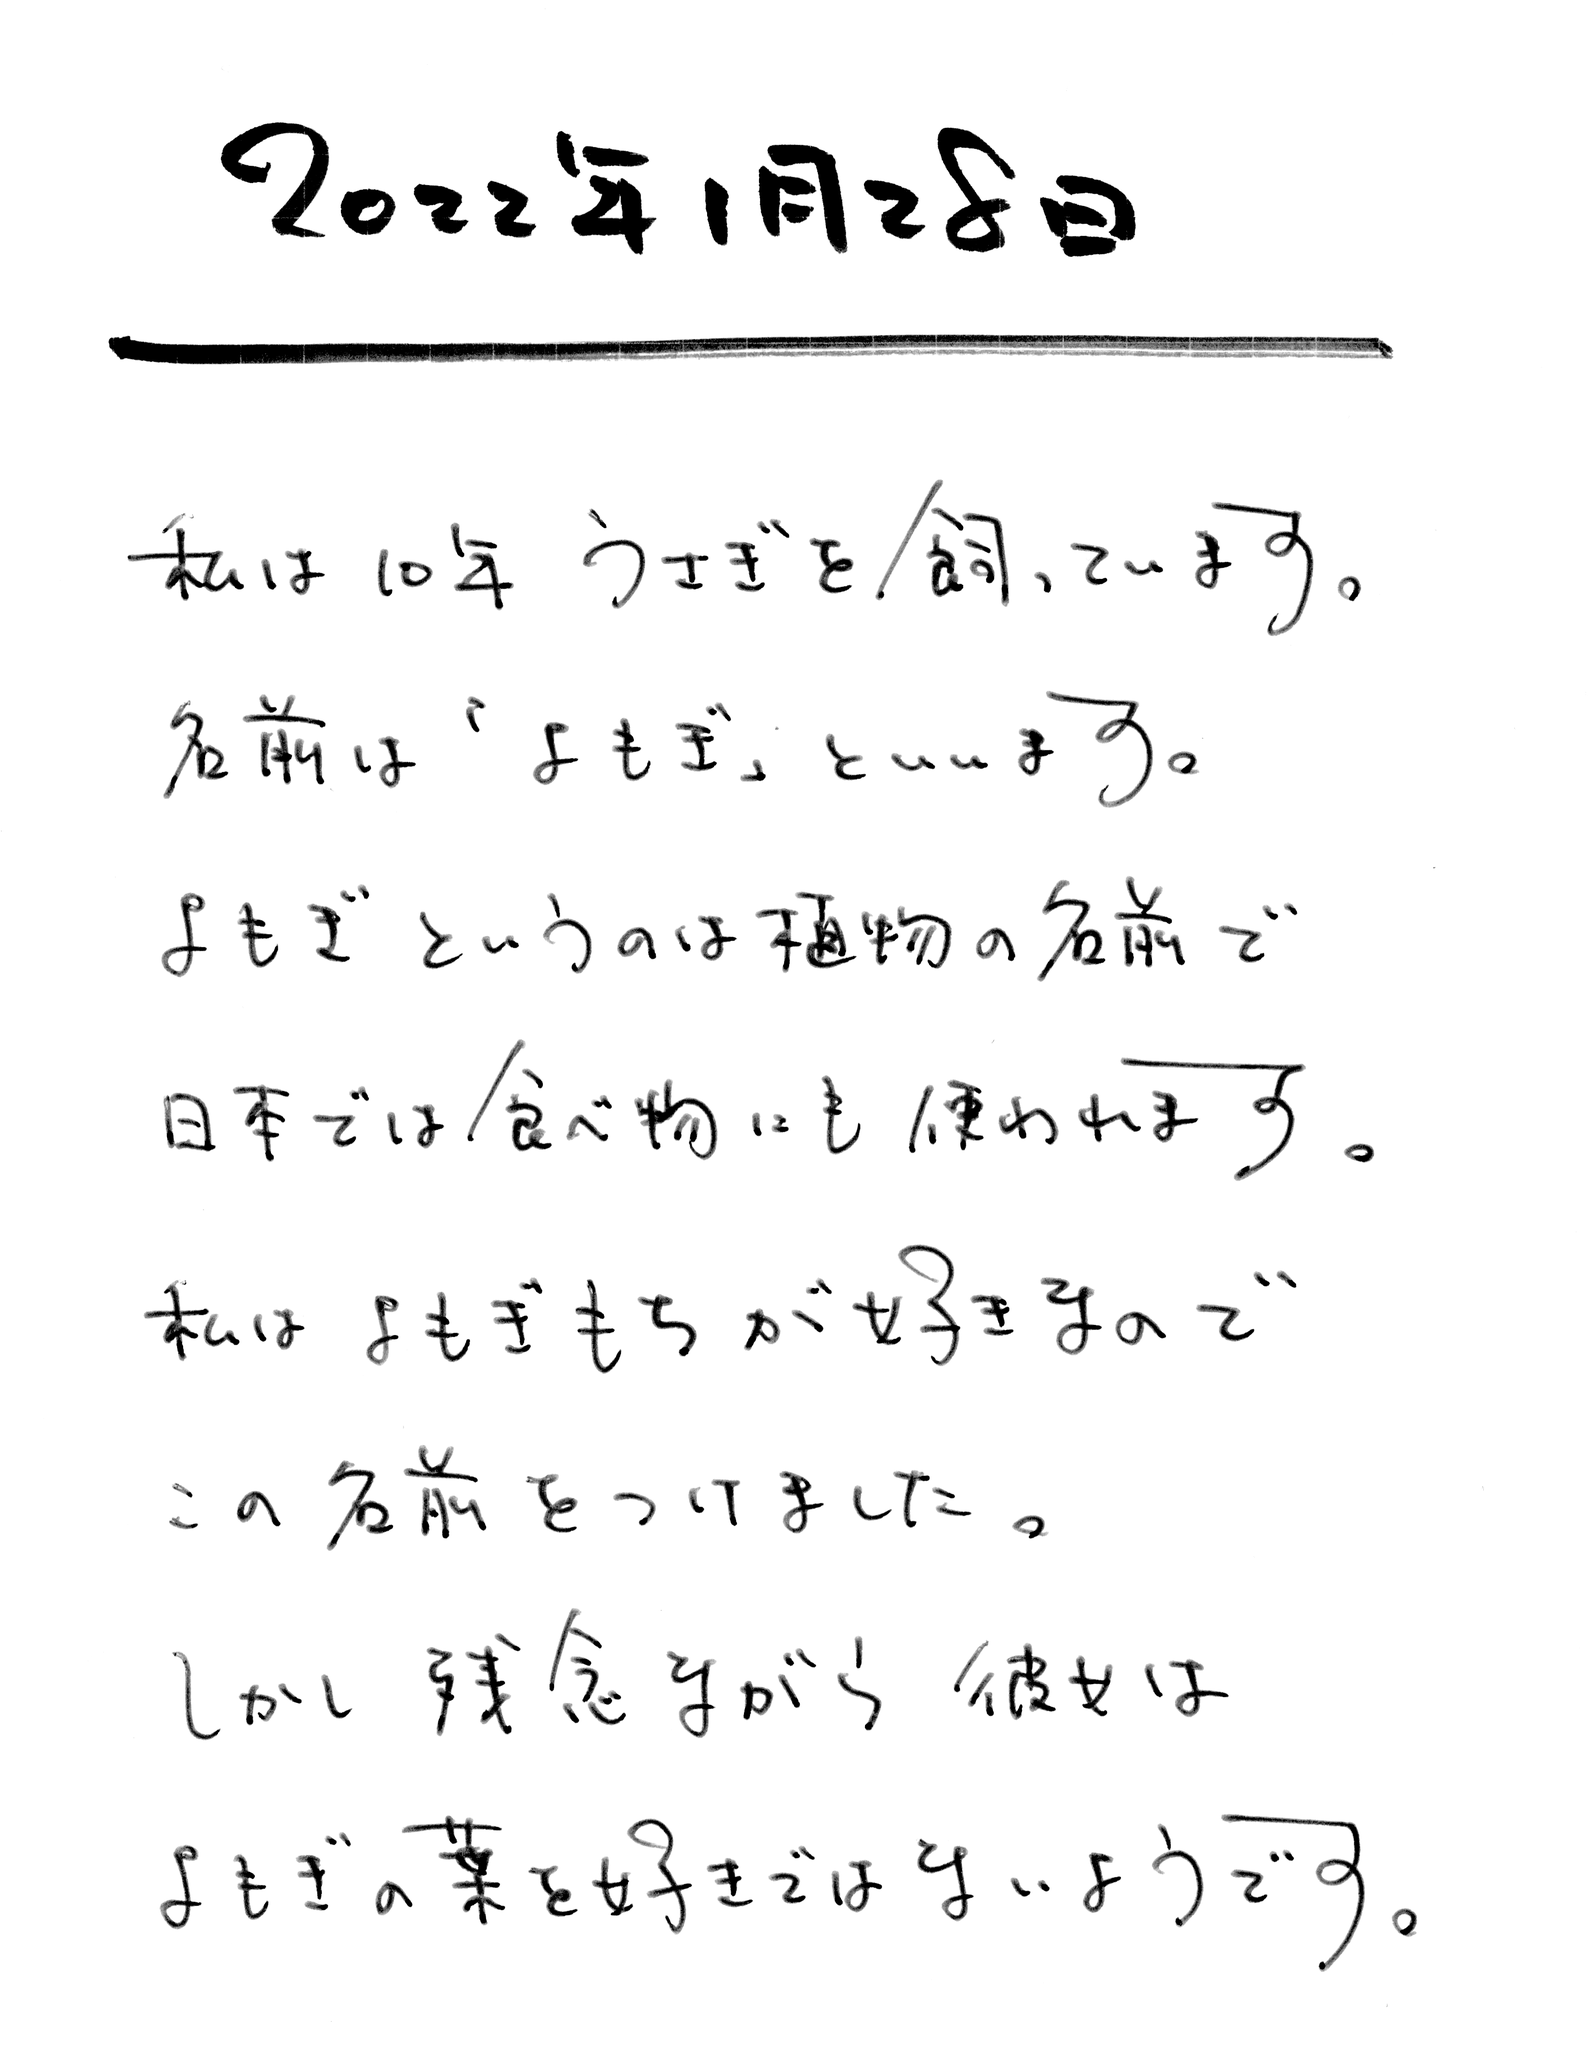 2022年1月28日
私は10年うさぎを飼っています。
名前は「よもぎ」といいます。
よもぎというのは植物の名前で
日本では食べ物にも使われます。
私はよもぎもちが好きなので
この名前をつけました。
しかし残念ながら彼女は
よもぎの葉を好きではないようです。